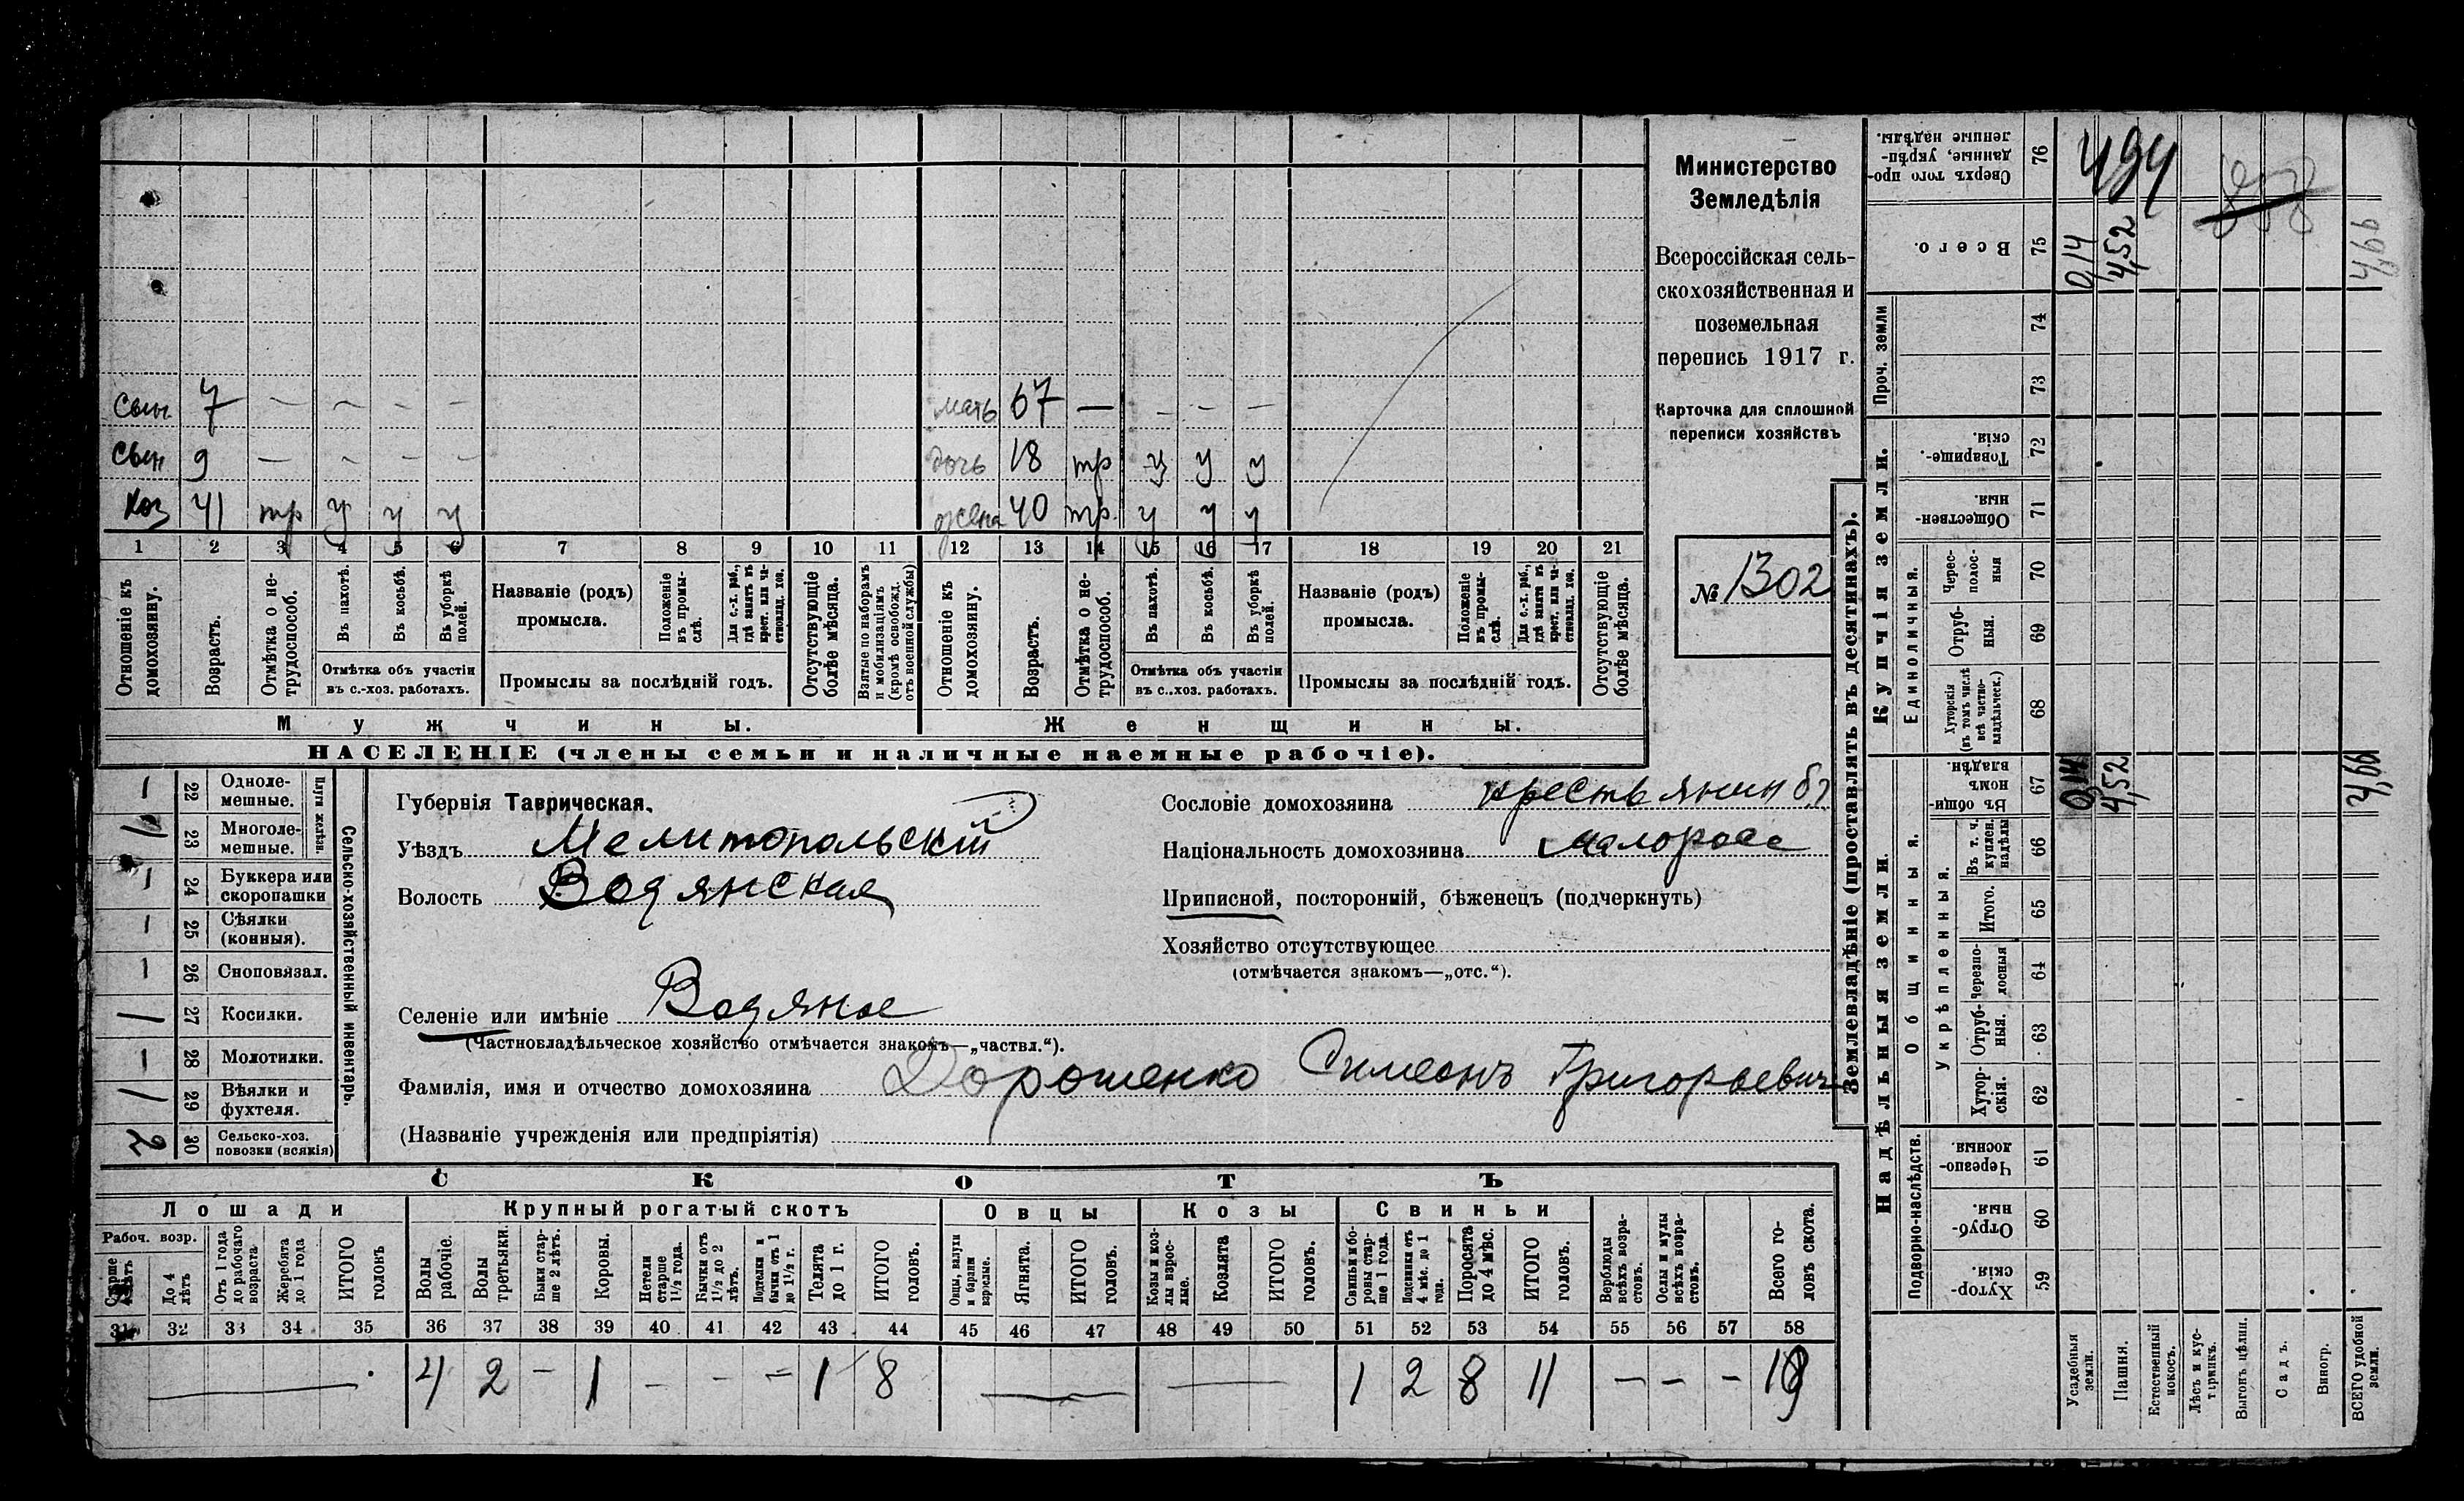 Министерство
Земледѣлія
Всероссійская сель-
скохозяйственная и
поземельная
перепись 1917 г.
Карточка для сплошной
переписи хозяйствъ
№ 1302
сын 7 — — — —
сын 9 — — — —
хоз 41 тр у у у
мать 67 — — — —
дочь 18 тр у у у
жена 40 тр. у у у
1 2 3 4 5 6 7 8 9 10 11 12 13 14 15 16 17 18 19 20 21
Отношеніе къ домохозяину.
Возрастъ.
Отмѣтка о не-трудоспособ.
Въ пахотѣ.
Въ косьбѣ.
Въ уборкѣ полей.
Отмѣтка объ участіи
въ с.-хоз. работахъ.
Названіе (родъ)
промысла.
Положеніе въ промы-слѣ.
Для с.-х. раб., гдѣ занятъ въ крест. или ча-стновлад. хоз.
Промыслы за послѣдній годъ.
Отсутствующіе болѣе мѣсяца.
Взятые по наборамъ и мобилизаціямъ (кромѣ освобожд. отъ военной службы)
Отношеніе къ домохозяину.
Возрастъ.
Отмѣтка о не-трудоспособ.
Въ пахотѣ.
Въ косьбѣ.
Въ уборкѣ полей.
Отмѣтка объ участіи
въ с..хоз. работахъ.
Названіе (родъ)
промысла.
Положеніе въ промы-слѣ.
Для с.-х. раб., гдѣ занята въ крест. или ча-стновлад. хоз.
Промыслы за послѣдній годъ.
Отсутствующіе болѣе мѣсяца.
Мужчины.
Женщины.
НАСЕЛЕНІЕ (члены семьи и наличные наемные рабочіе).
Сельско-хозяйственный инвентарь.
Плуги желѣзн.
1 22 Одноле-мешные.
1 23 Многоле-мешные.
1 24 Буккера или скоропашки
1 25 Сѣялки (конныя).
1 26 Сноповязал.
1 27 Косилки.
1 28 Молотилки.
1 29 Вѣялки и фухтеля.
2 30 Сельско-хоз. повозки (всякія)
Губернія Таврическая.
Уѣздъ Мелитопольскій
Волость Водянская
Селеніе или имѣніе Водяное
(Частновладѣльческое хозяйство отмѣчается знакомъ—„частвл.“).
Фамилія, имя и отчество домохозяина Дорошенко Симеонъ Григорьевич
(Названіе учрежденія или предпріятія)
Сословіе домохозяина крестьянин
Національность домохозяина малоросс
Приписной, посторонній, бѣженецъ (подчеркнуть)
Хозяйство отсутствующее
(отмѣчается знакомъ—„отс.“).
СКОТЪ
Лошади Крупный рогатый скотъ Овцы Козы Свиньи
Рабоч. возр.
До 4 лѣтъ
Отъ 1 года до рабочаго возраста
Жеребята до 1 года
ИТОГО головъ
Волы рабочіе.
Волы третьяки.
Быки стар-ше 2 лѣтъ.
Коровы.
Нетели старше 1½ года.
Бычки отъ 1½ до 2 лѣтъ.
Подтелки и бычки отъ 1 до 1½ г.
Телята до 1 г.
ИТОГО головъ.
Овцы, валухи и бараны взрослые.
Ягнята.
ИТОГО головъ.
Козы и коз-лы взрос-лые.
Козлята
ИТОГО головъ.
Свиньи и бо-ровы стар-ше 1 года.
Подсвинки отъ 4 мѣс. до 1 года.
Поросята до 4 мѣс.
ИТОГО головъ.
Верблюды всѣхъ возра-стовъ.
Ослы и мулы всѣхъ возра-стовъ.
Всего го-ловъ скота.
31 32 33 34 35 36 37 38 39 40 41 42 43 44 45 46 47 48 49 50 51 52 53 54 55 56 57 58
— 4 2 — 1 — — — 1 8 — — 1 2 8 11 — — — 19
Землевладѣніе (проставлять въ десятинахъ).
Надѣльныя земли.
Купчія земли.
Проч. земли
Подворно-наслѣдств.
Общинныя.
Укрѣпленныя.
Единоличныя.
Хутор-скія. 59
Отруб-ныя. 60
Черезпо-лосныя 61
Хутор-скія. 62
Отруб-ныя. 63
Черезпо-лосныя 64
Итого. 65
Въ т. ч. куплен. надѣлы 66
Въ общи-номъ владѣн. 67
Хуторскія (въ томъ числѣ всѣ частно-владѣльческ.) 68
Отруб-ныя. 69
Черес-полос-ныя 70
Обществен-ныя. 71
Товарище-скія. 72
73
74
Всего. 75
Сверхъ того про-данные, укрѣп-ленные надѣлы. 76
Усадебныя земли. 0,14 0,14
Пашня. 4,52 4,52
Естественный покосъ.
Лѣсъ и кус-тарникъ.
Выгонъ цѣлин.
Садъ.
Виногр.
ВСЕГО удобной земли. 4,66 4,66
494